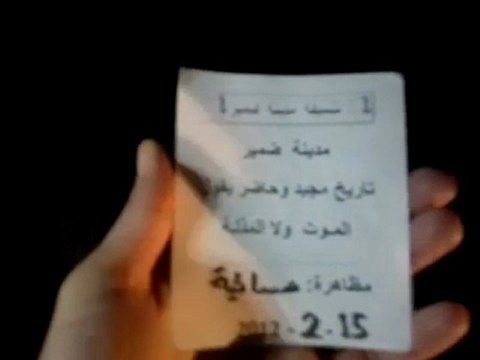 مدينة ضمير
تاريخ مجيد وحاضر يقول
الموت ولا المذلة
مظاهرة: مسائية
2012-2-15